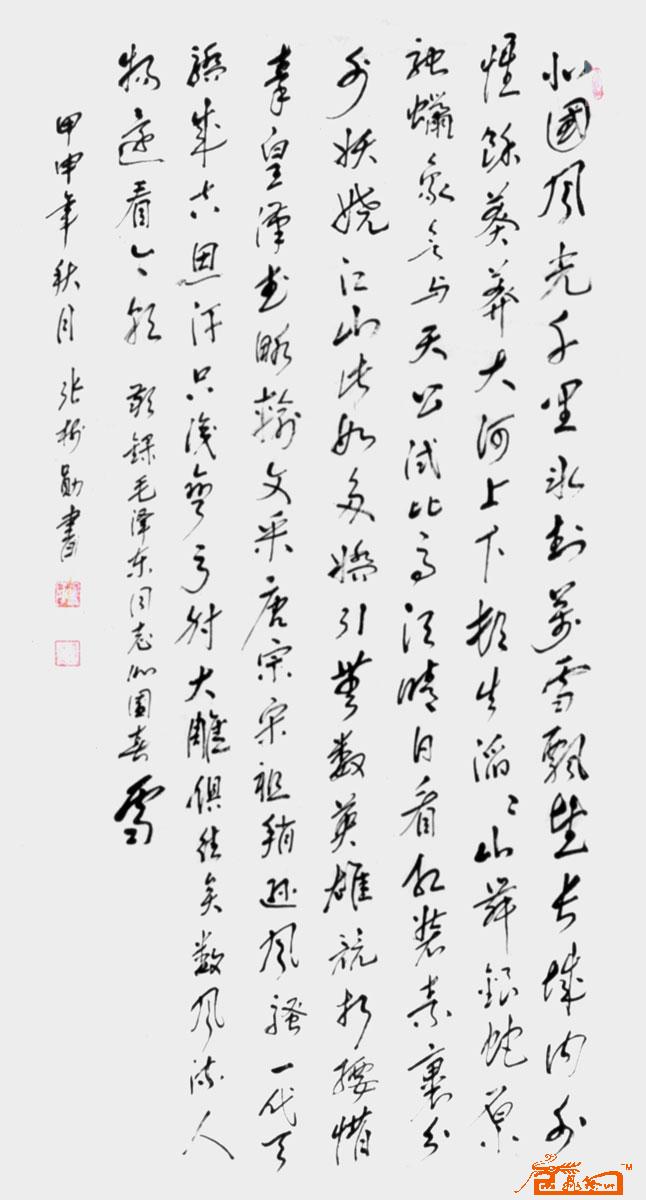 北國风光千里冰封萬雪飄望长城内外
惟餘莽莽大河上下顿失滔滔山舞銀蛇原
驰蠟象欲与天公试比高须晴日看红装素裹分
外妖娆江山此如多嬌引無数英雄競折腰惜
秦皇漢武略輸文采唐宋宋祖稍逊风騷一代天
驕成吉思汗只識彎弓射大雕俱往矣数风流人
物还看今朝 敬録毛泽东同志沁園春雪
甲申年秋月 张树勋書